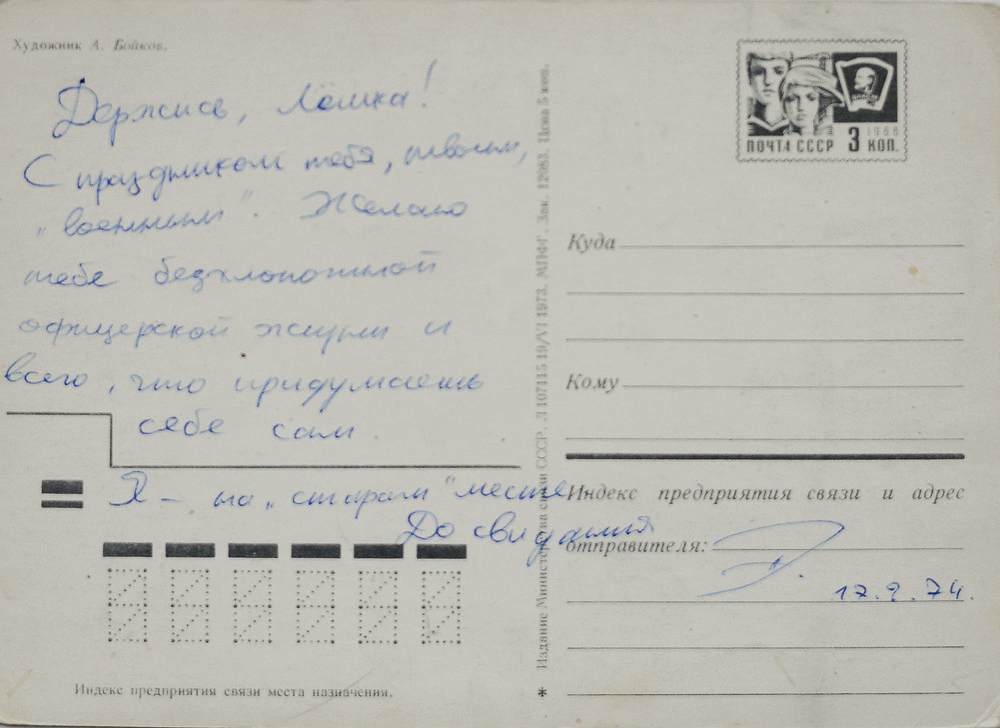 Художник А. Бойков.
Держись, Лёшка!
С праздником тебя, твоим,
„военным". Желаю
тебе безхлопотной
офицерской жизни и
всего, что придумаешь
себе сам.
Я – на „старом" месте.
До свидания
17.2.74.
Индекс предприятия связи места назначения.
Издание Министерства связи СССР. Л 107115 19/VI 1973. МПФГ. Зак. 12083. Цена 5 коп.
*
1966
ПОЧТА СССР 3 КОП.
Куда
Кому
Индекс предприятия связи и адрес
отправителя: